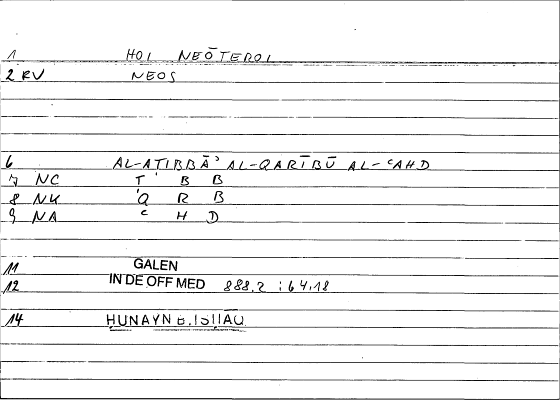 1 HOI NEŌTEROI
2 RV NEOS
6 AL-AṬIBBĀʾ AL-QARĪBŪ AL-ʿAHD
7 NC Ṭ B B
8 NK Q R B
9 NA ʿ H D
11 GALEN
12 IN DE OFF MED 888,2 : 64,18
14 ḤUNAYN B. ISḤAQ